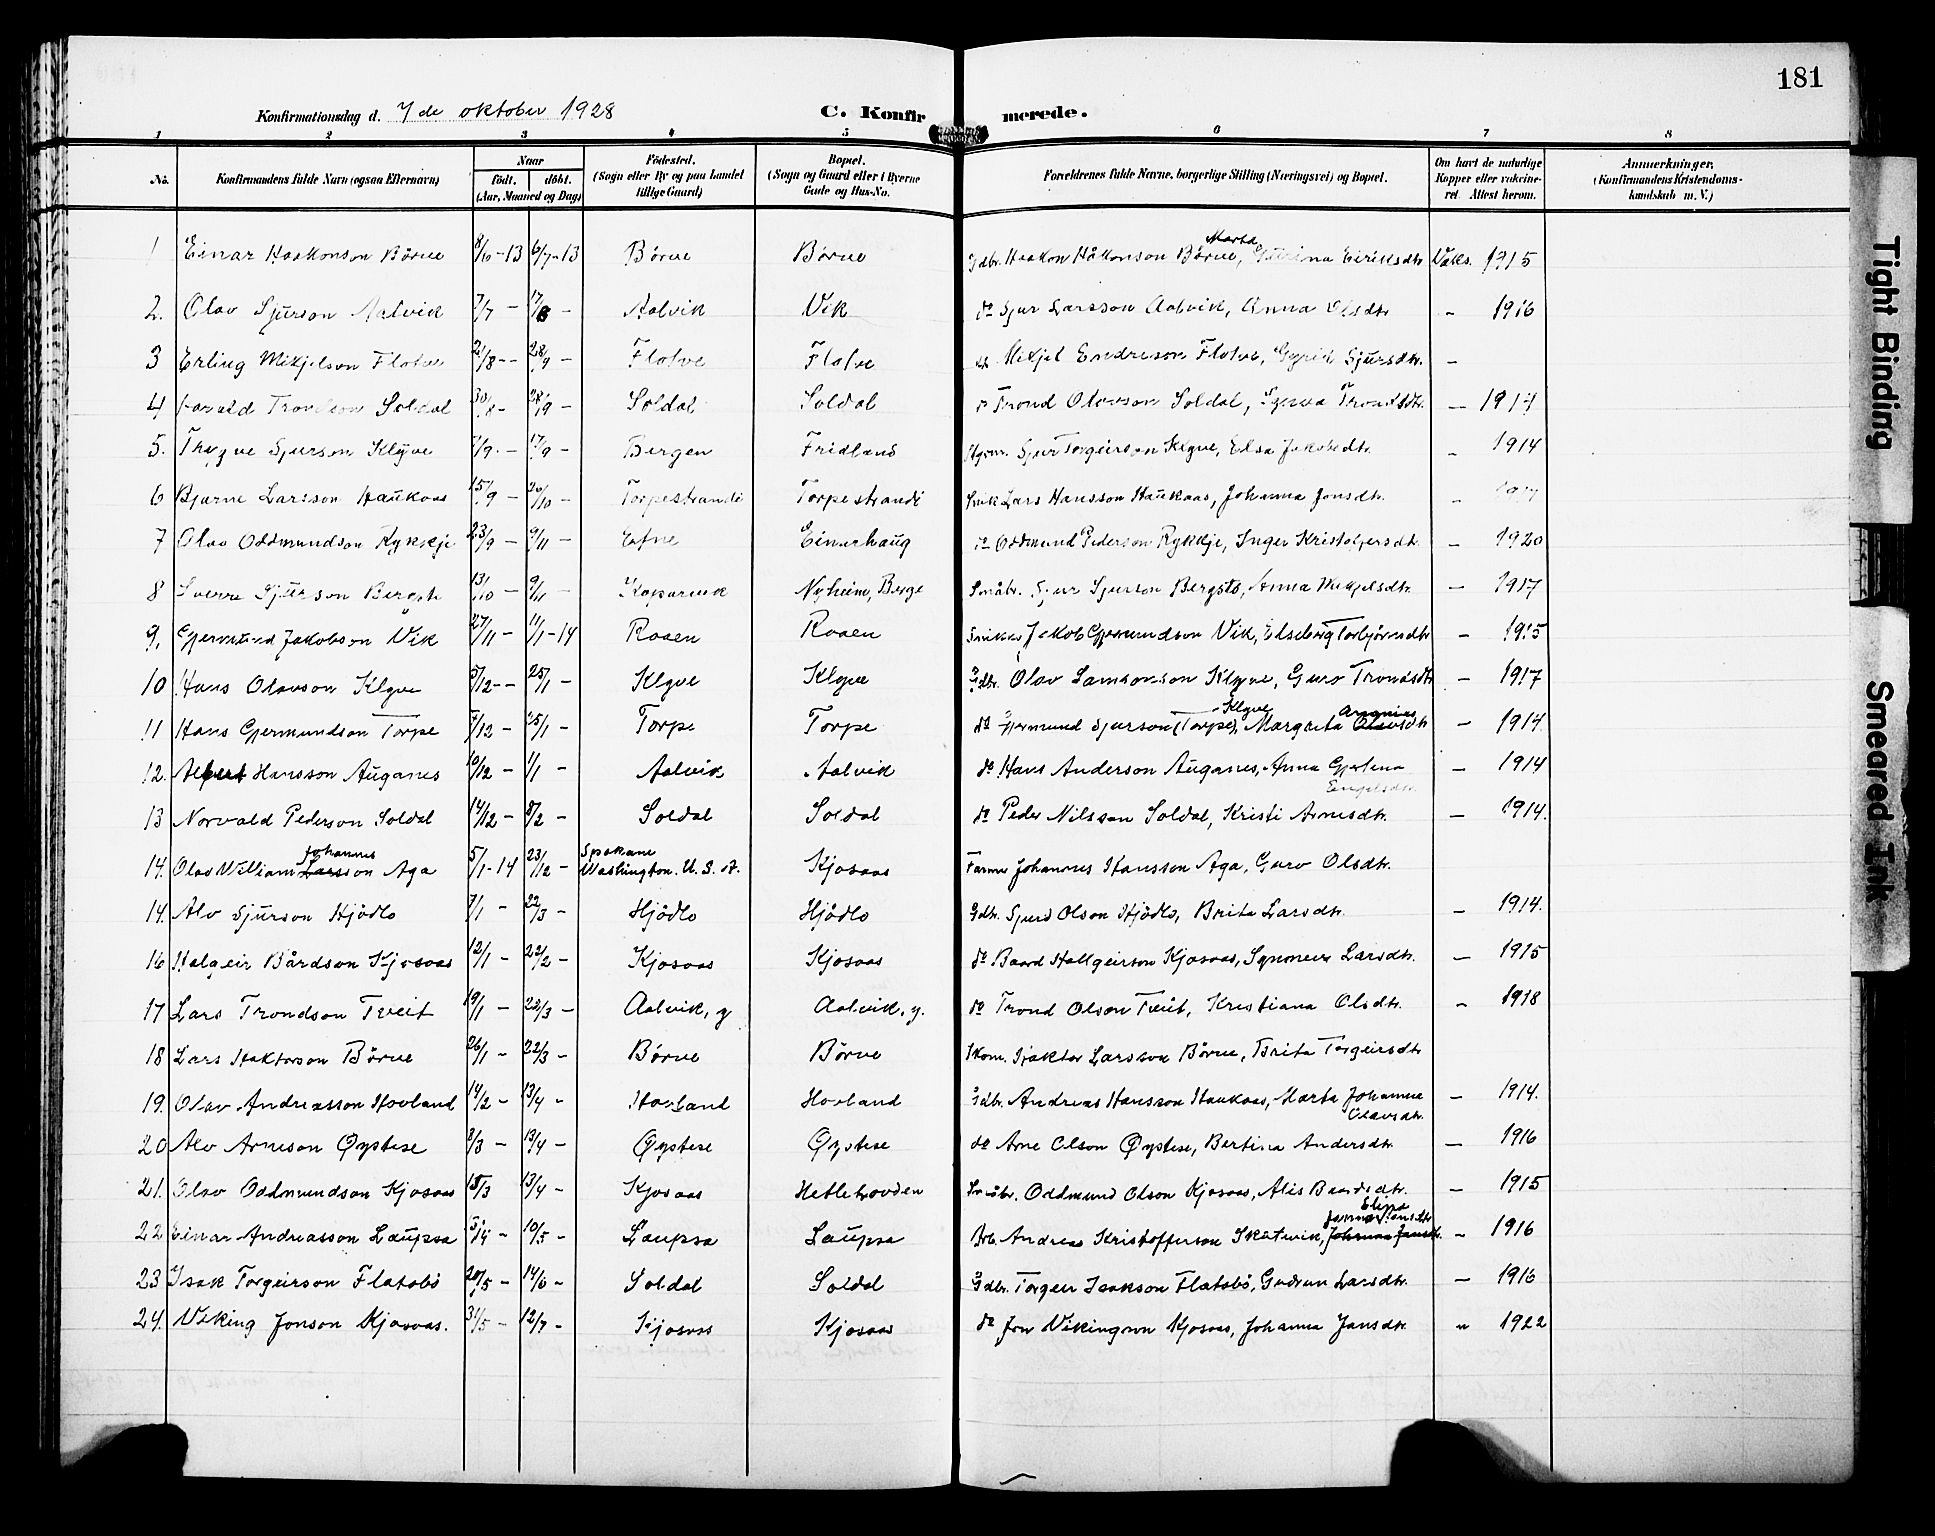 181
Konfirmationsdag d. 7 de oktober 1928 C. Konfirmerede.
1 2 3 4 5 6 7 8
No. Konfirmandens fulde Navn (ogsaa Efternavn) Naar født. døbt. (Aar, Maaned og Dag) Fødested. (Sogn eller By og paa Landet tillige Gaard) Bopæl. (Sogn og Gaard eller i Byerne Gade og Hus-No. Forældrenes fulde Navne, borgerlige Stilling (Næringsvei) og Bopæl. Om havt de naturlige Kopper eller vakcineret. Attest herom. Anmerkninger, (Konfirmandens Kristendomskundskab m. V.)
1 Einar Haakonson Börve 8/6-13 6/7-13 Börve Börve Gdbr. Haakon Håkonson Börve, Marta Eiriksdtr. Vaks. 1915
2. Olav Sjurson Aalvik 7/7 - 17/8 - Aalvik Vik do Sjur Larsson Aalvik, Anna Olsdtr - 1916
3 Erling Mikjelson Flotve 2/8 - 28/9 - Flotve Flotve do Mikjel Endreson Flotve, Gyrid Sjursdtr. -
4 Harald Trondson Soldal 30/8 - 28/9 - Soldal Soldal Trond Olavson Soldal, Trondsdtr. - 1914
5. Trygve Sjurson Klyve 7/9 - 17/9 - Bergen Fridland Sjur Torgeirson Klyve, Elsa Jakobsdtr. - 1914
6 Bjarne Larsson Haukaas 15/9 - 20/10 - Torpestrandi Torpestrandi Snik Lars Hansson Haukaas, Johanna Jonsdtr. -
7 Olav Oddmundson Rykkje 23/9 - 9/11 - Efne Einerhaug do Oddmund Pederson Rykkje, Inger Kristofersdtr. - 1920
8 Sverre Sjurson Bergstø 13/10 - 9/11 - Kopervik Nyheim, Berge Småbr. Sjur Sjurson Bergstø, Anna Mikjelsdtr. - 1917
9. Gjermund Jakobson Vik 27/11 - 11/1-14 Rosen Rosen Snikar Jakob Gjermundson Vik, Elseberg Torbjörnsdtr - 1915
10 Hans Olavson Klyve 5/12 - 25/1 - Klyve Klyve Gdbr. Olav Samsonson Klyve, Guro Trondsdtr - 1917
11 Hans Gjermundson Torpe 7/12 - 25/1 - Torpe Torpe do Gjermund Sjurson (Torpe) Klyve, Margreta Olavsdtr - 1914.
12. Albert Hansson Auganes 10/12 - 1/1 - Aalvik Aalvik do Hans Anderson Auganes, Anna Gjertina Engelsdtr. - 1914
13 Norvald Pederson Soldal 14/12 - 8/2 - Soldal Soldal do Peder Nilsson Soldal, Kristi Arnesdtr. - 1914.
14. Olav William Johannes Larsson Aga 5/1-14 23/12 - Spokane Washington. U.S.A. Kjosaas Farmer Johannes Hansson Aga, Guro Olsdtr.
14. Alv Sjurson Hjödlo 7/1 - 22/3 - Hjödlo Hjödlo Gdbr. Sjurd Olson Hjödlo, Brita Larsdtr. - 1914.
16 Halgeir Bårdson Kjosaas 12/1 - 22/2 - Kjosaas Kjosaas do Baard Hallgeirson Kjosaas, Synneva Larsdtr. - 1915
17 Lars Trondson Tveit 19/1 - 22/3 - Aalvik, y Aalvik, y. do Trond Olson Tveit, Kristiana Olsdtr. - 1918
18 Lars Haktorson Börve 26/1 - 22/3 - Börve Börve Skom. Haktor Larsson Börve, Brita Torgeirsdtr
19. Olav Andreasson Hovland 14/2 - 13/4 - Hovland Hovland Gdbr. Andreas Hansson Haukaas, Marta Johanna Olavsdtr. - 1914.
20 Alv Arneson Øystese 8/3 - 13/4 - Øystese Øystese do Arne Olson Øystese, Bertina Andersdtr. - 1916
21. Olav Oddmundson Kjosaas 15/3 13/4 - Kjosaas Hetlehovden Småbr. Oddmund Olson Kjosaas, Alis Baardsdtr. - 1915
22 Einar Andreasson Laupsa 5/4 - 10/5 - Laupsa Laupsa Arb. Andreas Kristofferson Skeivik, Elina Johanna Jansdtr. - 1916
23 Isak Torgeirson Flatabö 20/5 - 14/6 - Soldal Soldal Gdbr. Torgeir Isakson Flatabö, Gudrun Larsdtr. - 1916
24. Viking Jonson Kjosaas. 31/5 - 12/7 - Kjosaas Kjosaas do Jon Vikingson Kjosaas, Johanna Jansdtr. " 1922
Tight Binding
Smeared Ink